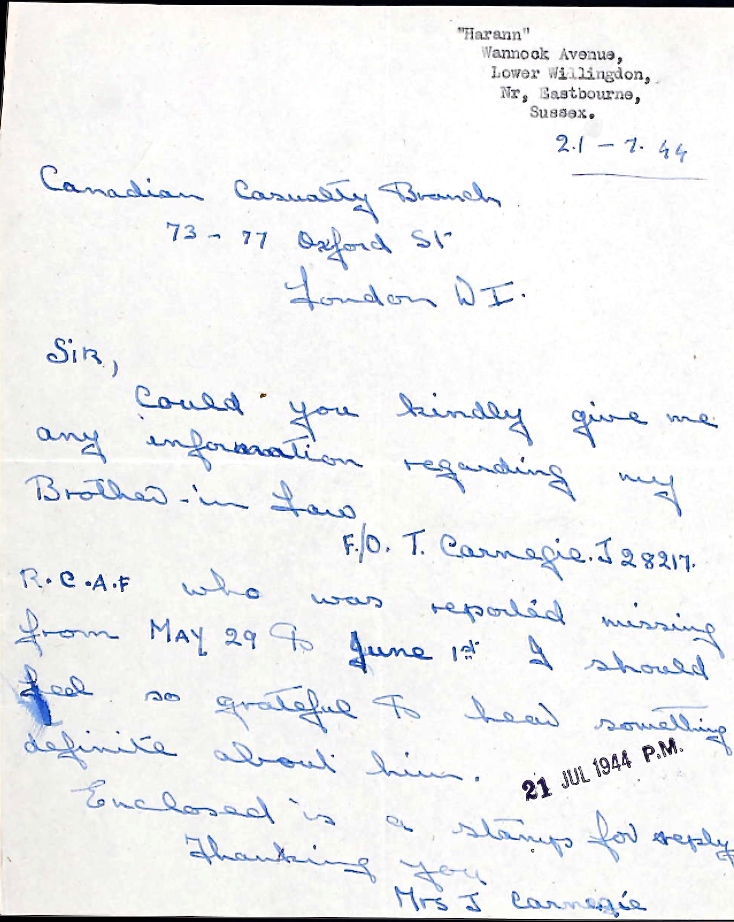 "Harann"
Wannock Avenue,
Lower Willingdon,
Nr, Eastbourne,
Sussex.
21-7.44
Canadian Casualty Branch
73-77 Oxford St
London W I.
Sir,
Could you kindly give me
any information regarding my
Brother-in Law
F/O. T. Carnegie. J 28217.
R.C.A.F who was reported missing
from MAY 29 to June 1st I should
feel so grateful to hear something
definite about him.
21 JUL 1944 P.M.
Enclosed is a stamps for reply
Thanking you
Mrs J Carnegie